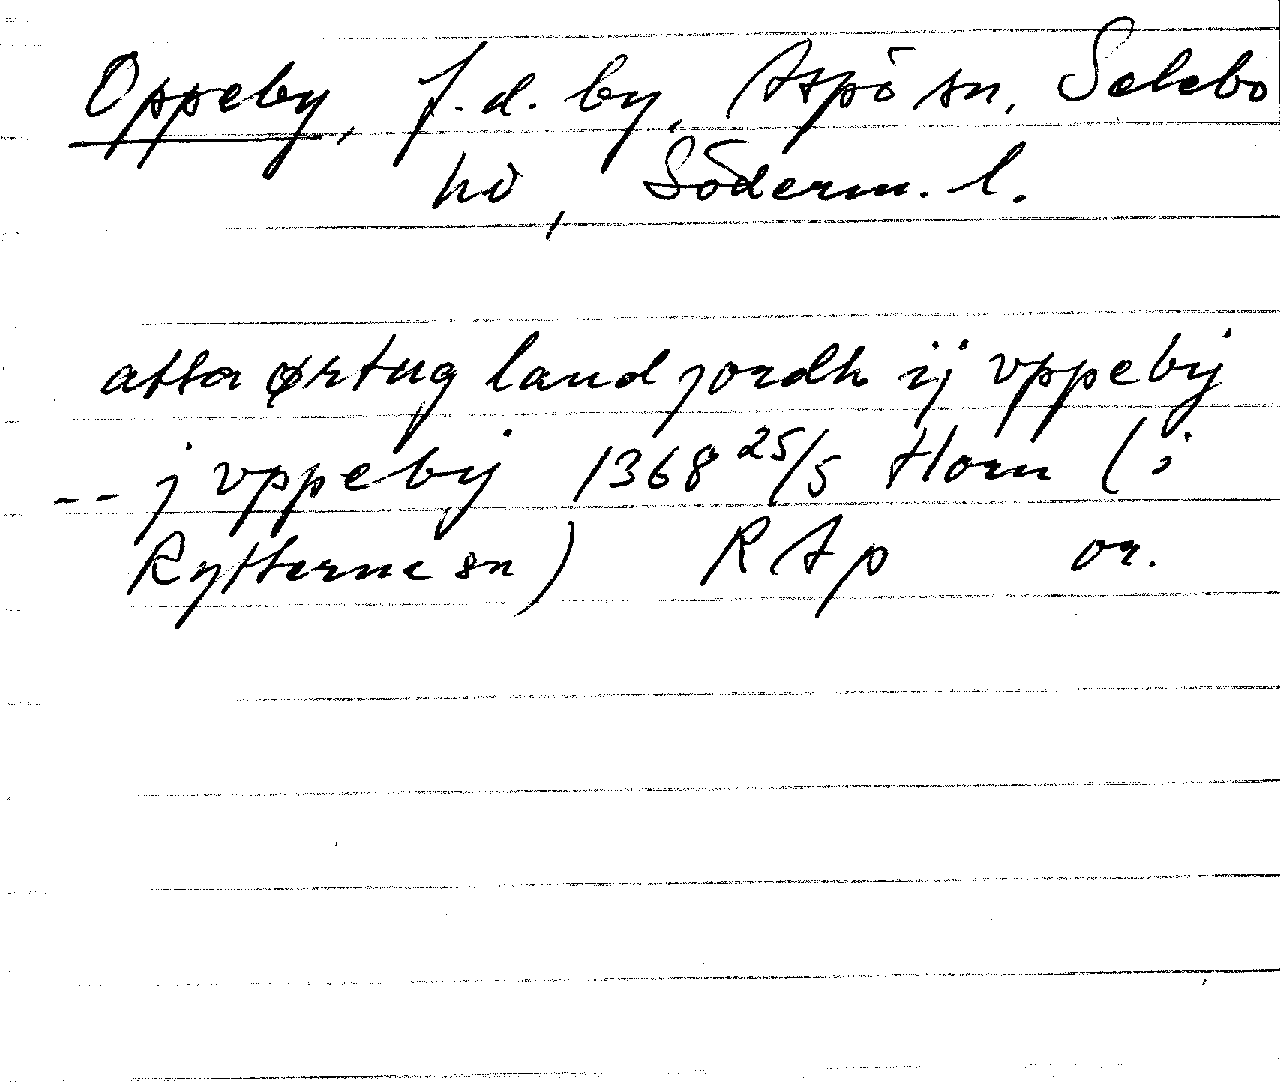 Oppeby, f.d. by, Aspö sn, Selebo
hd, Söderm. l.
atta ørtug land jordh ij vppeby
-- j vppeby 1368 25/5 Horn (i
Rytterne sn) RAp or.